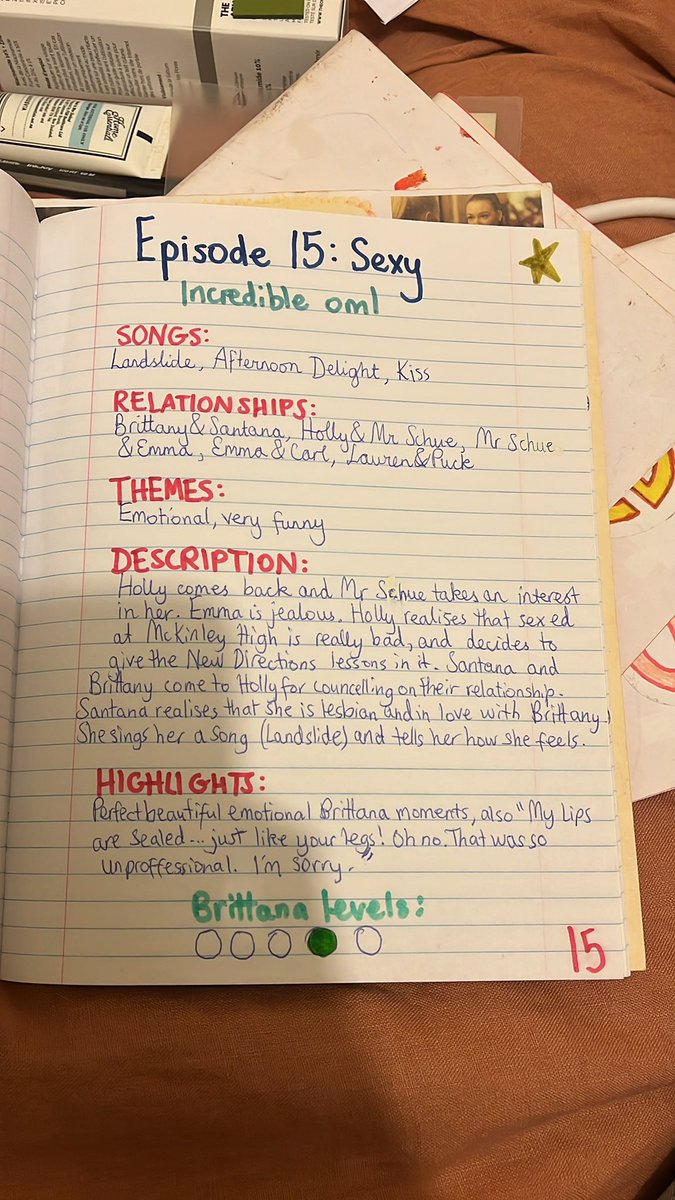 THE
Episode 15: Sexy
Incredible oml
SONGS:
Landslide, Afternoon Delight, Kiss
RELATIONSHIPS:
Brittany & Santana, Holly & Mr Schue, Mr Schue
& Emma, Emma & Carl, Lauren & Puck
THEMES:
Emotional, very funny
DESCRIPTION:
Holly comes back and Mr Schue takes an interest
in her. Emma is jealous. Holly realises that sex ed
at McKinley High is really bad, and decides to
give the New Directions lessons in it. Santana and
Brittany come to Holly for councelling on their relationship.
Santana realises that she is lesbian and in love with Brittany.
She sings her a song (Landslide) and tells her how she feels.
HIGHLIGHTS:
Perfect beautiful emotional Brittana moments, also "My Lips
are sealed... just like your legs! Oh no. That was so
unproffessional. I'm sorry."
Brittana levels:
15